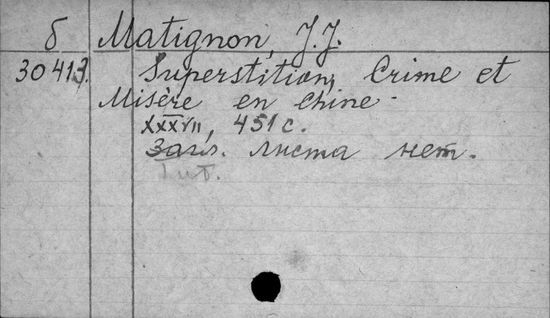 б Matignon, J.J.
30413. Superstition, Crime et
Misère en Chine
XXXVII, 451 с.
Загл. листа нет.